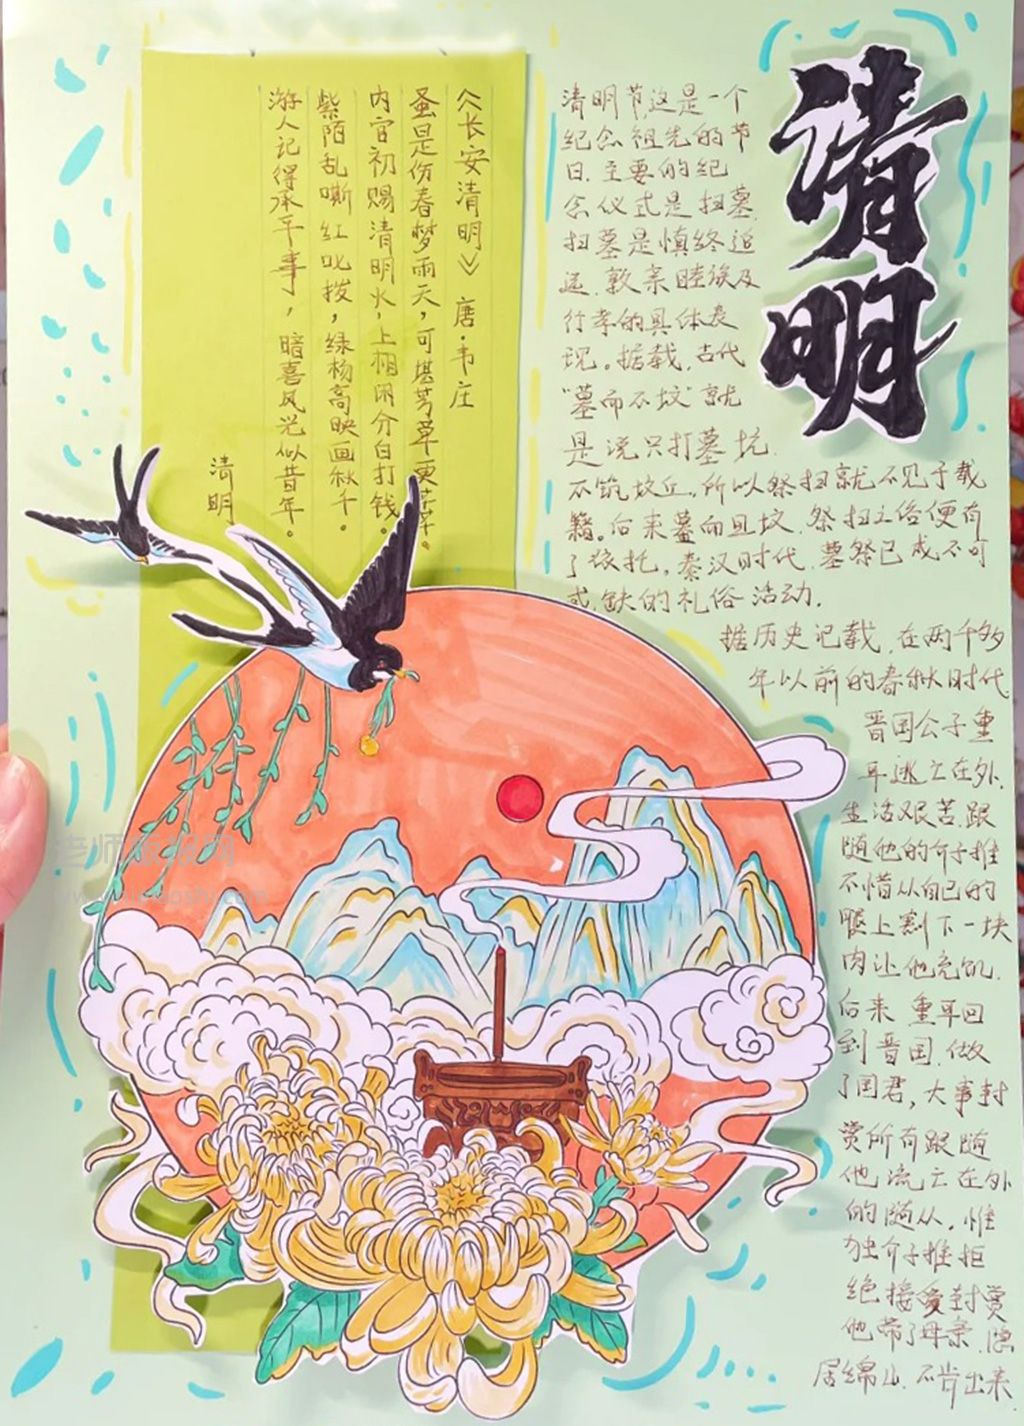 清明
《长安清明》 唐·韦庄
蚤是伤春梦雨天，可堪芳草更芊芊。
内官初赐清明火，上相闲分白打钱。
紫陌乱嘶红叱拨，绿杨高映画秋千。
游人记得承平事，暗喜风光似昔年。
清明
清明节,这是一个
纪念祖先的节
日.主要的纪
念仪式是扫墓.
扫墓是慎终追
远.敦亲睦族及
行孝的具体表
现。据载,古代
“墓而不坟”就
是说只打墓坑
不筑坟丘,所以祭扫就不见于载
籍。后来墓而且坟.祭扫之俗便有
了依托,秦汉时代.墓祭已成不可
或缺的礼俗活动.
据历史记载,在两千多
年以前的春秋时代
晋国公子重
耳逃亡在外,
生活艰苦.跟
随他的介子推
不惜从自己的
腿上割下一块
肉让他充饥.
后来 重耳回
到晋国.做
了国君,大事封
赏所有跟随
他流亡在外
的随从.惟
独介子推拒
绝接受封赏
他带了母亲.隐
居绵山.不肯出来.
老师板报网